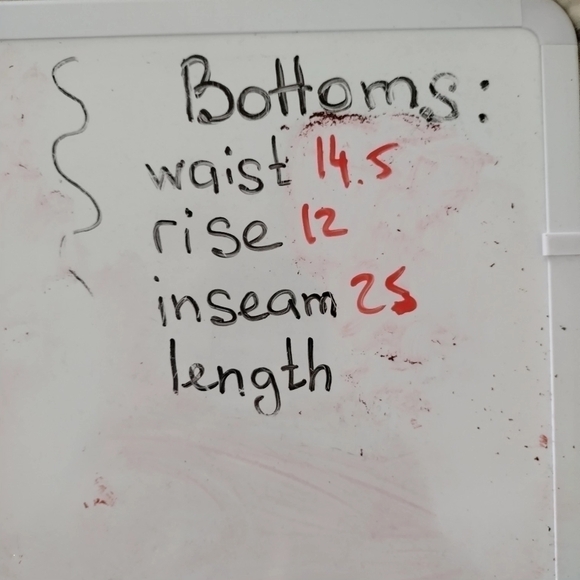 Bottoms:
waist 14.5
rise 12
inseam 25
length